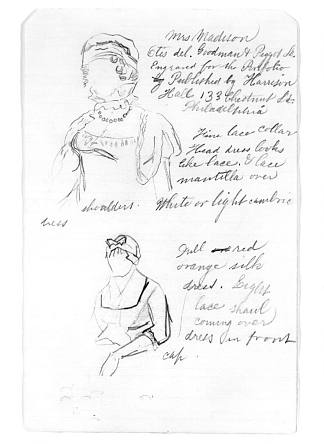 Mrs Madison
Otis del. Goodman & Piggot Sc.
Engraved for the Portfolio
Published by Harrison
Hall 133 Chestnut St.
Philadelphia
Fine lace collar
Head dress looks
like lace. lace
mantilla over
shoulders. White or light cambric
dress
Full red
orange silk
dress. Light
lace shawl
coming over
dress in front
cap.